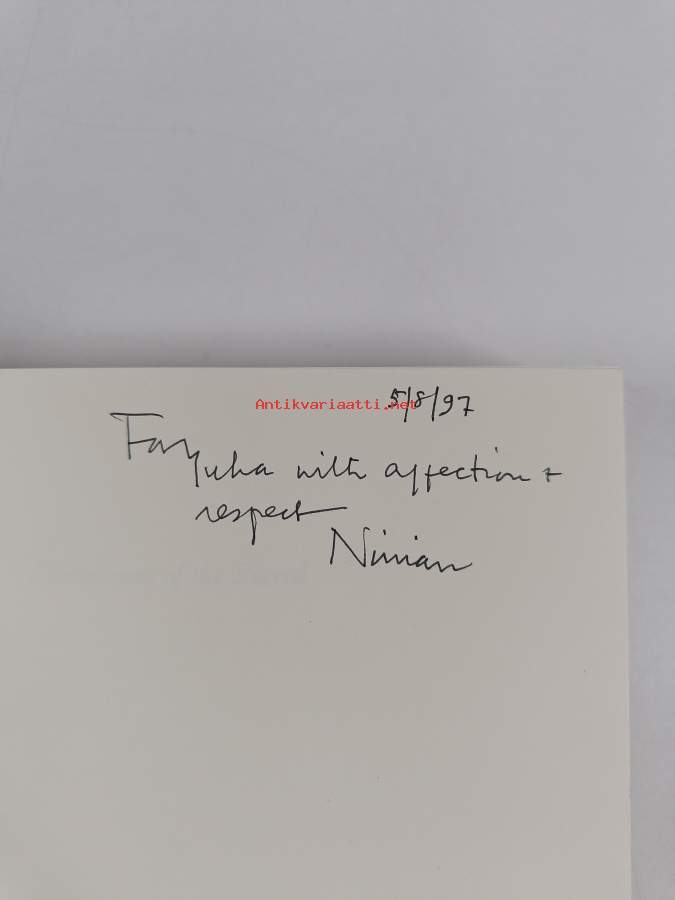 5/8/97
Antikvariaatti.net
For Juha with affection +
respect
Ninian